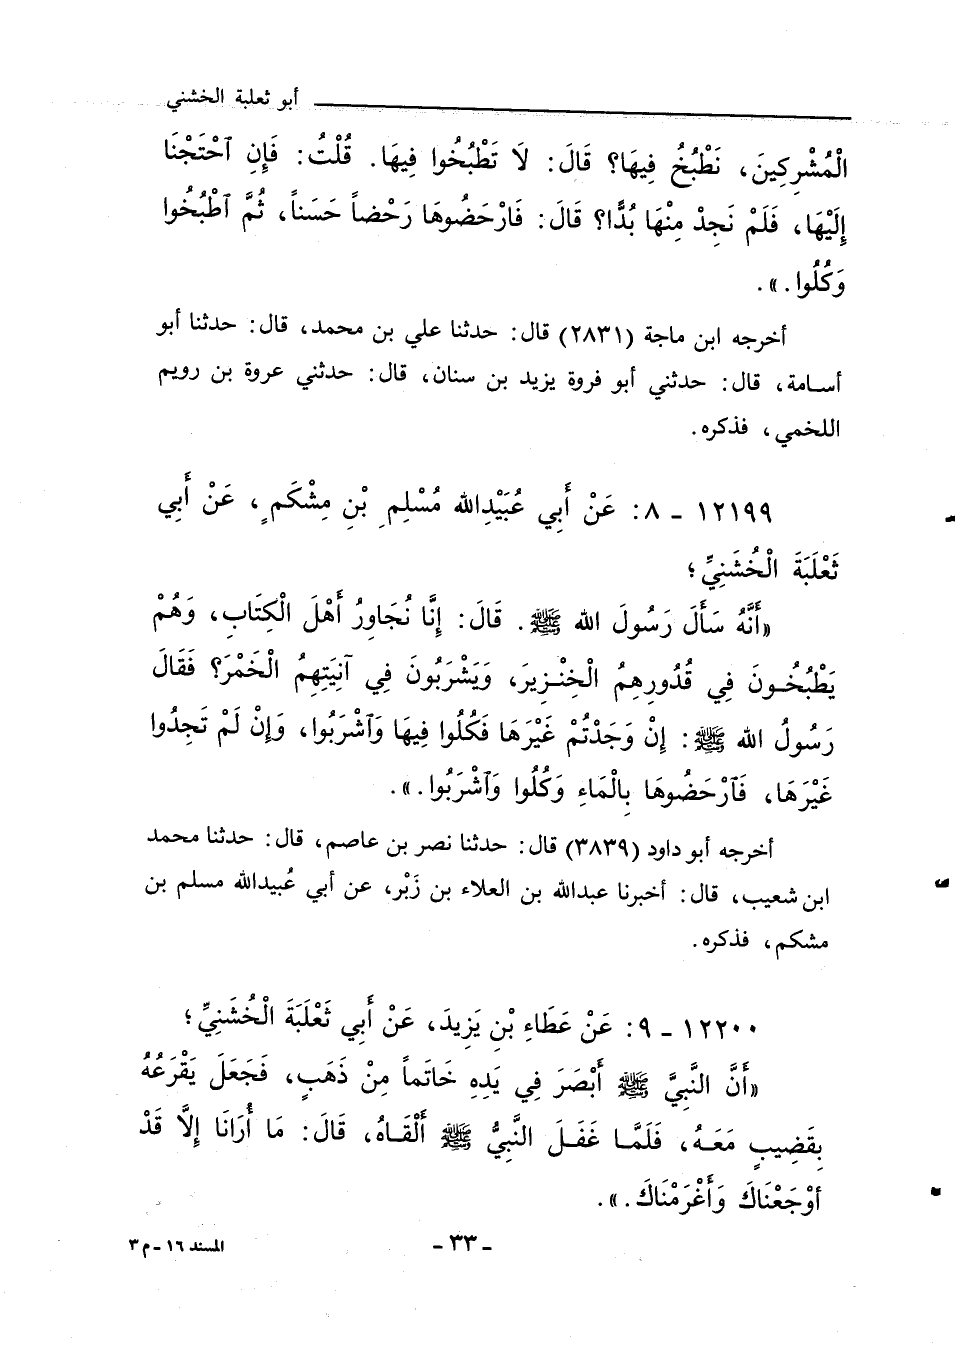 أبو ثعلبة الخشني
الْمُشْرِكِينَ، نَطْبُخُ فِيهَا؟ قَالَ: لَا تَطْبُخُوا فِيهَا. قُلْتُ: فَإِنِ ٱحْتَجْنَا
إِلَيْهَا، فَلَمْ نَجِدْ مِنْهَا بُدًّا؟ قَالَ: فَارْحَضُوهَا رَحْضاً حَسَناً، ثُمَّ ٱطْبُخُوا
وَكُلُوا.».
أخرجه ابن ماجة (٢٨٣١) قال: حدثنا علي بن محمد، قال: حدثنا أبو
أسامة، قال: حدثني أبو فروة يزيد بن سنان، قال: حدثني عروة بن رويم
اللخمي، فذكره.
١٢١٩٩ - ٨: عَنْ أَبِي عُبَيْدِالله مُسْلِمِ بْنِ مِشْكَمٍ، عَنْ أَبِي
ثَعْلَبَةَ الْخُشَنِيِّ؛
«أَنَّهُ سَأَلَ رَسُولَ الله ﷺ. قَالَ: إِنَّا نُجَاوِرُ أَهْلَ الْكِتَابِ، وَهُمْ
يَطْبُخُونَ فِي قُدُورِهِمُ الْخِنْزِيرَ، وَيَشْرَبُونَ فِي آنِيَتِهِمُ الْخَمْرَ؟ فَقَالَ
رَسُولُ الله ﷺ: إِنْ وَجَدْتُمْ غَيْرَهَا فَكُلُوا فِيهَا وَٱشْرَبُوا، وَإِنْ لَمْ تَجِدُوا
غَيْرَهَا، فَٱرْحَضُوهَا بِالْمَاءِ وَكُلُوا وَٱشْرَبُوا.».
أخرجه أبو داود (٣٨٣٩) قال: حدثنا نصر بن عاصم، قال: حدثنا محمد
ابن شعيب، قال: أخبرنا عبدالله بن العلاء بن زَبْر، عن أبي عُبيدالله مسلم بن
مشكم، فذكره.
١٢٢٠٠ - ٩: عَنْ عَطَاءِ بْنِ يَزِيدَ، عَنْ أَبِي ثَعْلَبَةَ الْخُشَنِيِّ؛
«أَنَّ النَّبِيَّ ﷺ أَبْصَرَ فِي يَدِهِ خَاتَماً مِنْ ذَهَبٍ، فَجَعَلَ يَقْرَعُهُ
بِقَضِيبٍ مَعَهُ، فَلَمَّا غَفَلَ النَّبِيُّ ﷺ أَلْقَاهُ، قَالَ: مَا أُرَانَا إِلَّا قَدْ
أَوْجَعْنَاكَ وَأَغْرَمْنَاكَ.».
- ٣٣ -
المسند ١٦ - م ٣